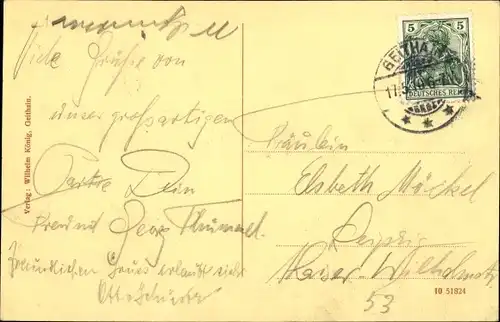 Viele Grüße von
unser großartigen
Dein
Freund Georg
Gruss erlaubt sich
Otto Schuster
Verlag: Wilhelm König, Geithain.
5 5
DEUTSCHES REICH
GEITHAIN
17.5. 6-7N.
Fräulein
Elsbeth Möckel
Leipzig
Kaiser-Wilhelmstr
53
10 51824